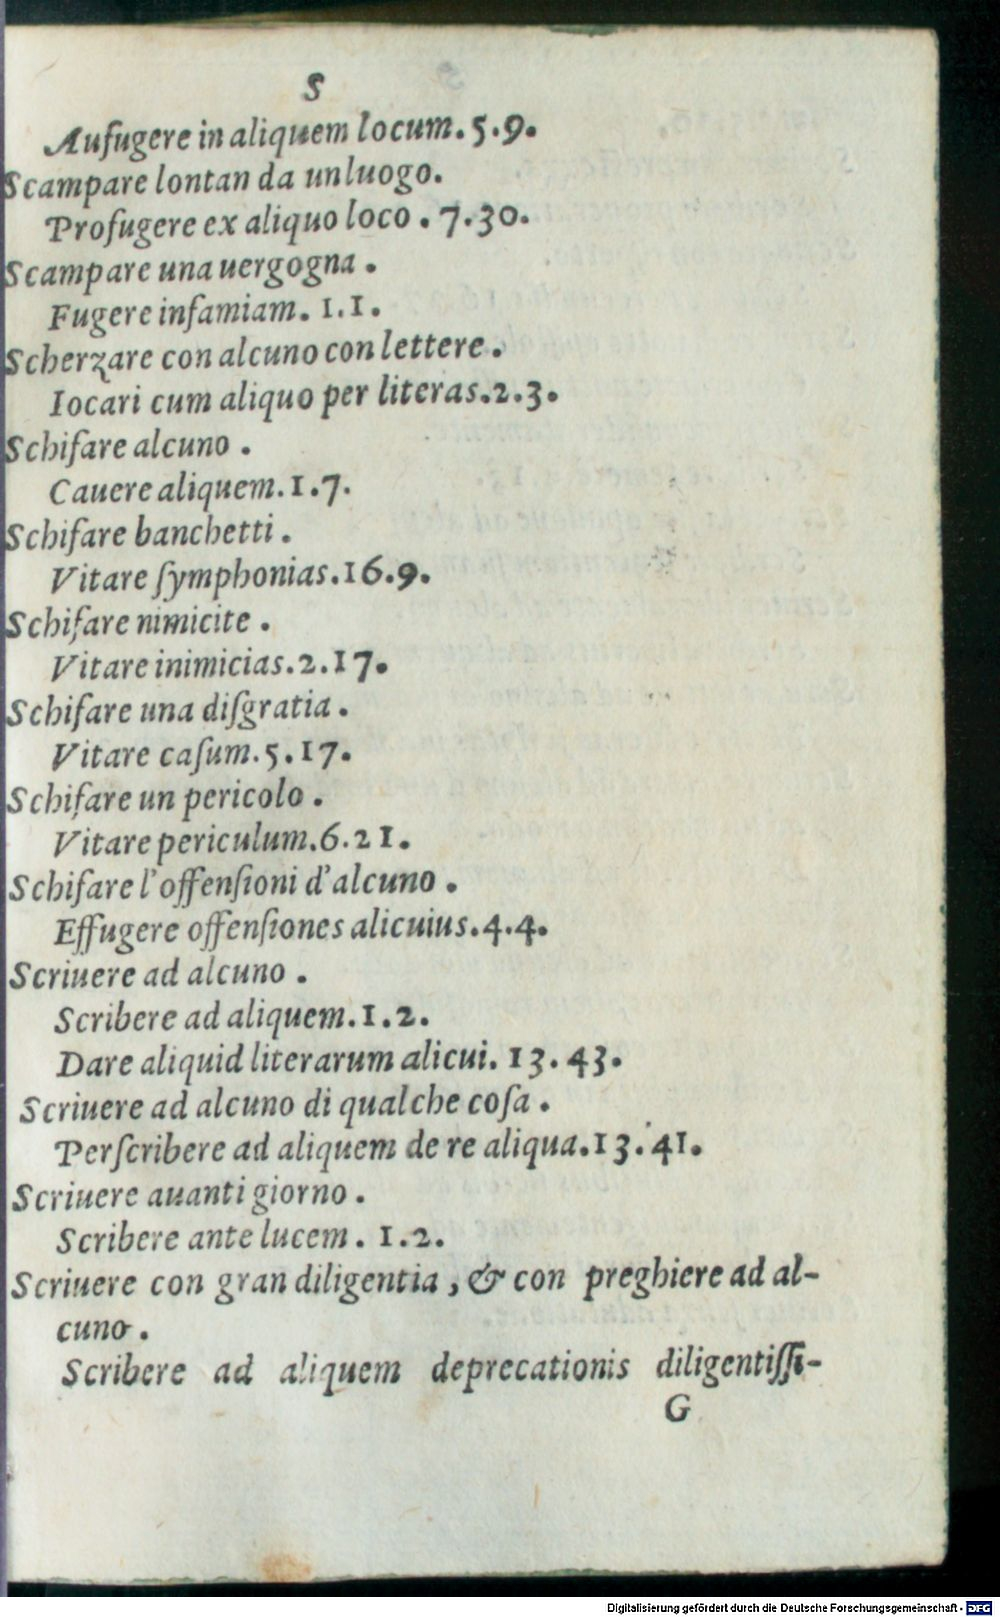 S
Aufugere in aliquem locum. 5.9.
Scampare lontan da un luogo.
Profugere ex aliquo loco. 7.30.
Scampare una uergogna.
Fugere infamiam. 1.1.
Scherzare con alcuno con lettere.
Iocari cum aliquo per literas. 2.3.
Schifare alcuno.
Cauere aliquem. 1.7.
Schifare banchetti.
Vitare ſymphonias. 16.9.
Schifare nimicite.
Vitare inimicias. 2.17.
Schifare una diſgratia.
Vitare caſum. 5.17.
Schifare un pericolo.
Vitare periculum. 6.21.
Schifare l'offenſioni d'alcuno.
Effugere offenſiones alicuius. 4.4.
Scriuere ad alcuno.
Scribere ad aliquem. 1.2.
Dare aliquid literarum alicui. 13.43.
Scriuere ad alcuno di qualche coſa.
Perſcribere ad aliquem de re aliqua. 13.41.
Scriuere auanti giorno.
Scribere ante lucem. 1.2.
Scriuere con gran diligentia, & con preghiere ad al-
cuno.
Scribere ad aliquem deprecationis diligentiſſi-
G
Digitalisierung gefördert durch die Deutsche Forschungsgemeinschaft - DFG